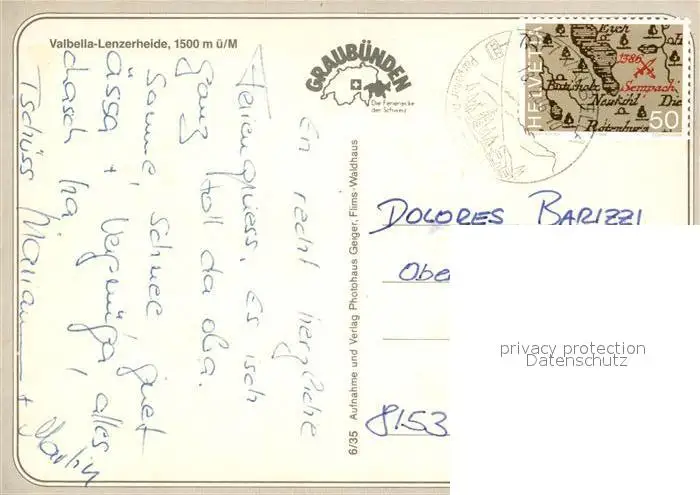 Valbella-Lenzerheide, 1500 m ü/M
GRAUBÜNDEN
Die Ferienecke
der Schweiz
HELVETIA
Eich
1386
Sempach
Neukilch
Die
Rotenburg
50
En recht herzliche
Feriengruess. Es isch
ganz toll da oba.
Sonne, Schnee, guet
ässa + Vergnüga, alles
dasch ha!
Tschüss Marian + Martin
6/35 Aufnahme und Verlag Photohaus Geiger, Flims-Waldhaus
DOLORES BARIZZI
Obe
8153
privacy protection
Datenschutz